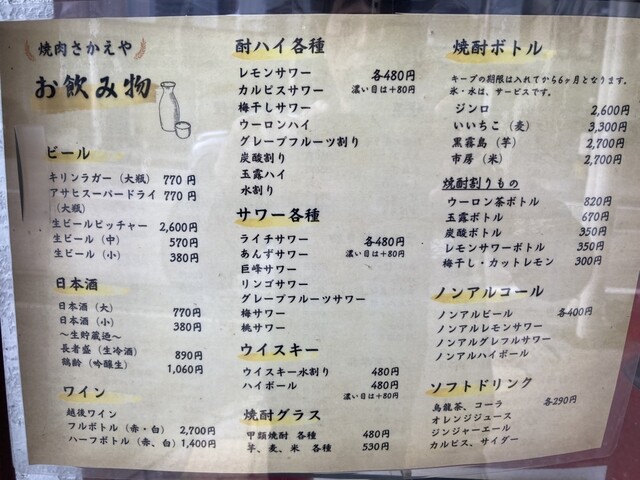 焼肉さかえや
お飲み物
ビール
キリンラガー（大瓶） 770円
アサヒスーパードライ 770円
（大瓶）
生ビールピッチャー 2,600円
生ビール（中） 570円
生ビール（小） 380円
日本酒
日本酒（大） 770円
日本酒（小） 380円
〜生貯蔵造〜
長者盛（生冷酒） 890円
鶴齢（吟醸生） 1,060円
ワイン
越後ワイン
フルボトル（赤・白） 2,700円
ハーフボトル（赤、白）1,400円
酎ハイ各種
レモンサワー 各480円
カルピスサワー 濃い目は＋80円
梅干しサワー
ウーロンハイ
グレープフルーツ割り
炭酸割り
玉露ハイ
水割り
サワー各種
ライチサワー 各480円
あんずサワー 濃い目は＋80円
巨峰サワー
リンゴサワー
グレープフルーツサワー
梅サワー
桃サワー
ウイスキー
ウイスキー水割り 480円
ハイボール 480円
濃い目は＋80円
焼酎グラス
甲類焼酎 各種 480円
芋、麦、米 各種 530円
焼酎ボトル
キープの期限は入れてから6ヶ月となります。
氷・水は、サービスです。
ジンロ 2,600円
いいちこ（麦） 3,300円
黒霧島（芋） 2,700円
市房（米） 2,700円
焼酎割りもの
ウーロン茶ボトル 820円
玉露ボトル 670円
炭酸ボトル 350円
レモンサワーボトル 350円
梅干し・カットレモン 300円
ノンアルコール
ノンアルビール 各400円
ノンアルレモンサワー
ノンアルグレフルサワー
ノンアルハイボール
ソフトドリンク
烏龍茶、コーラ 各290円
オレンジジュース
ジンジャーエール
カルピス、サイダー